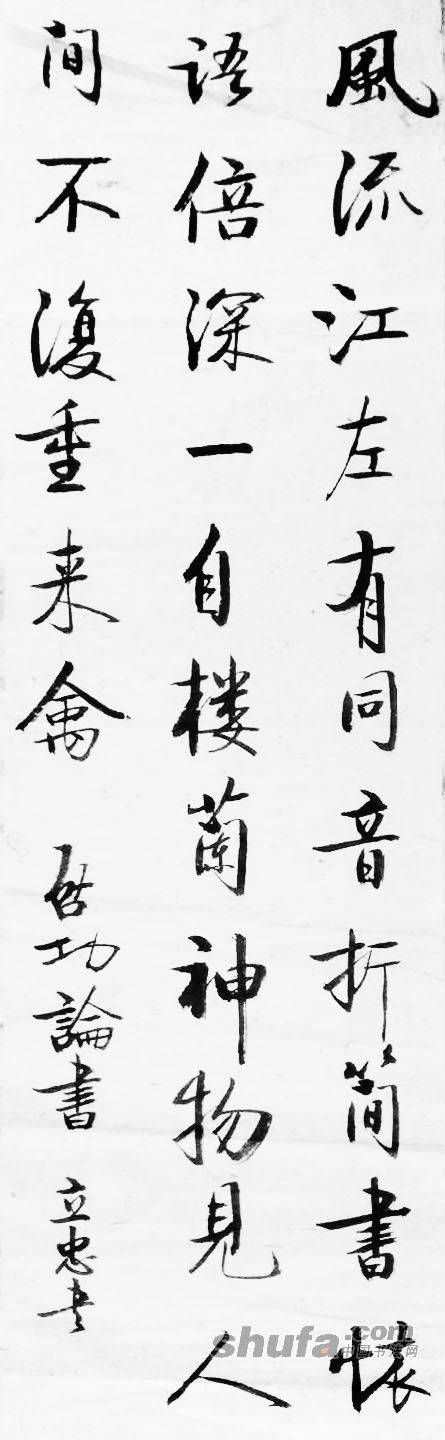 風流江左有同音折簡書懷
語倍深一自楼蘭神物見人
间不復重来禽
啓功論書
立忠書
shufa.com
中国书法网